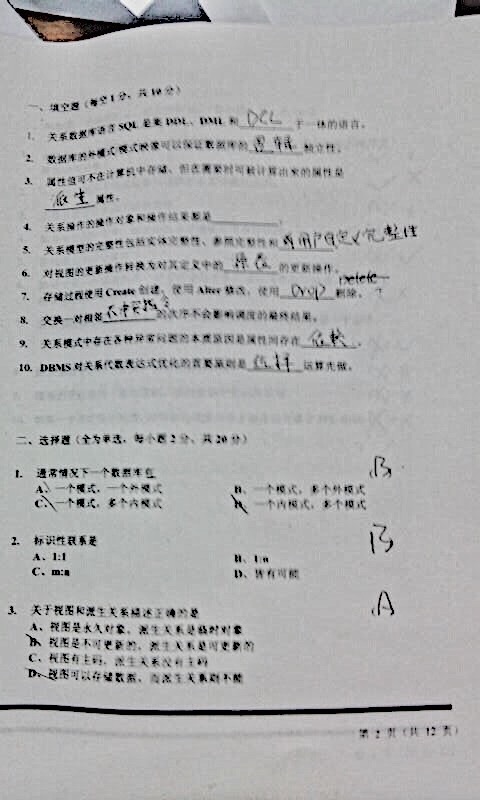 一、填空题（每空1分，共10分）
1. 关系数据库语言SQL是集DDL、DML和 DCL 于一体的语言。
2. 数据库的外模式/模式映像可以保证数据库的 逻辑 独立性。
3. 属性值可不在计算机中存储，但在需要时可被计算出来的属性是
派生 属性。
4. 关系操作的操作对象和操作结果都是
5. 关系模型的完整性包括实体完整性、参照完整性和 用户自定义完整性
6. 对视图的更新操作转换为对其定义中的 的更新操作。
Delete
7. 存储过程使用Create创建，使用Alter修改，使用 Drop 删除。
8. 交换一对相邻 的次序不会影响调度的最终结果。
9. 关系模式中存在各种异常问题的本质原因是属性间存在 依赖
10. DBMS对关系代数表达式优化的首要原则是 选择 运算先做。
二、选择题（全为单选，每小题2分，共20分）
1. 通常情况下一个数据库包 B
A、一个模式，一个外模式 B、一个模式，多个外模式
C、一个模式，多个内模式 D、一个内模式，多个模式
2. 标识性联系是 B
A、1:1 B、1:n
C、m:n D、皆有可能
3. 关于视图和派生关系描述正确的是 A
A、视图是永久对象，派生关系是临时对象
B、视图是不可更新的，派生关系是可更新的
C、视图有主码，派生关系没有主码
D、视图可以存储数据，而派生关系则不能
第 2 页（共 12 页）